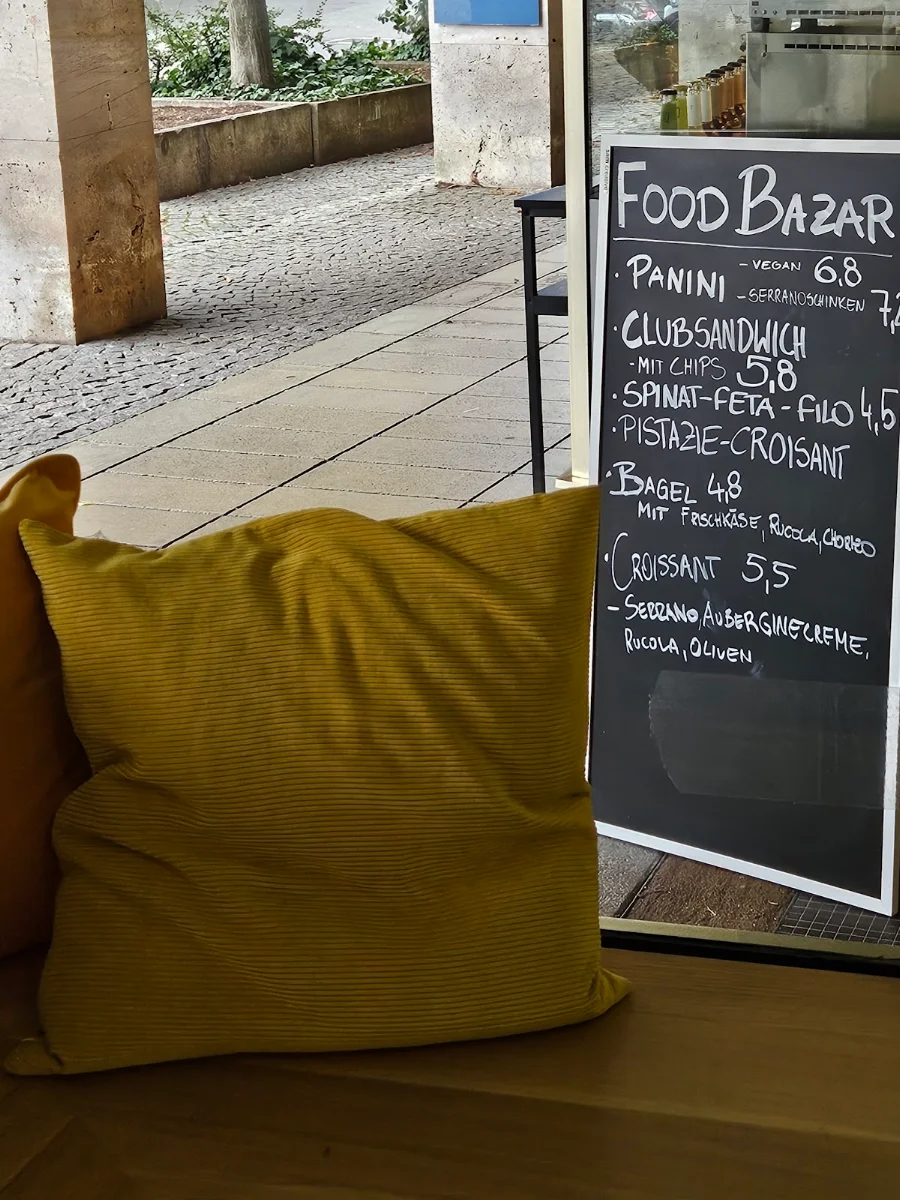 FOOD BAZAR
· PANINI - VEGAN 6,8
- SERRANOSCHINKEN 7,2
· CLUBSANDWICH
- MIT CHIPS 5,8
· SPINAT-FETA-FILO 4,5
· PISTAZIE-CROISANT
· BAGEL 4,8
MIT FRISCHKÄSE, RUCOLA, CHORIZO
· CROISSANT 5,5
- SERRANO, AUBERGINECREME,
RUCOLA, OLIVEN